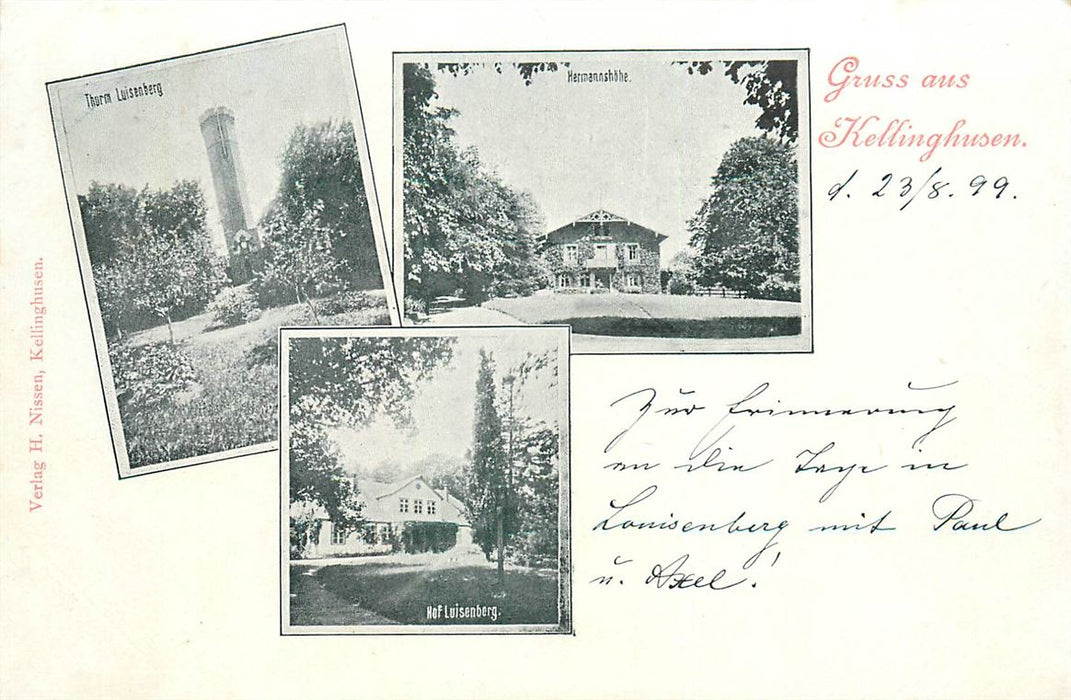 Thurm Luisenberg
Hermannshöhe.
Gruss aus
Kellinghusen.
d. 23/8. 99.
Zur Erinnerung
an die Tage in
Louisenberg mit Paul
u. Axel!
Hof Luisenberg.
Verlag H. Nissen, Kellinghusen.